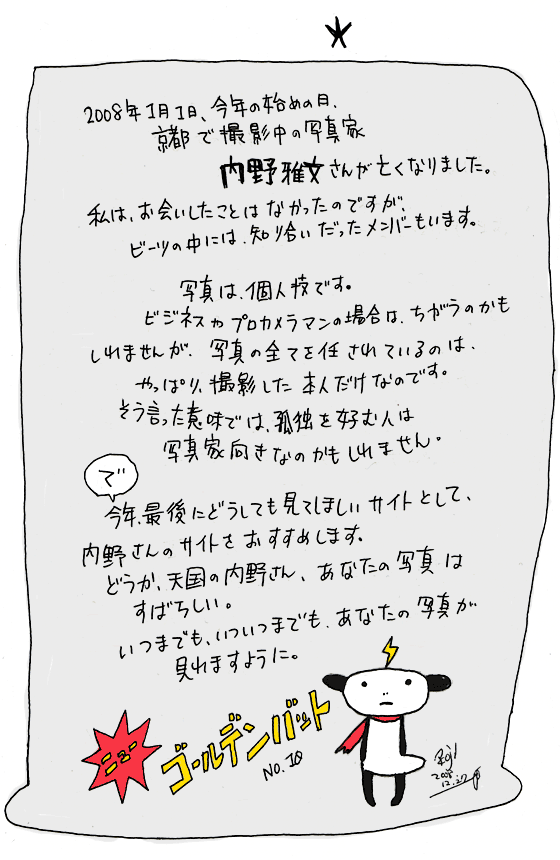 2008年1月1日、今年の始めの日、
京都で撮影中の写真家
内野雅文さんが亡くなりました。
私は、お会いしたことはなかったのですが、
ビーツの中には、知り合いだったメンバーもいます。
写真は、個人技です。
ビジネスやプロカメラマンの場合は、ちがうのかも
しれませんが、写真の全てを任されているのは、
やっぱり、撮影した本人だけなのです。
そう言った意味では、孤独を好む人は
写真家向きなのかもしれません。
で
今年、最後にどうしても見てほしいサイトとして、
内野さんのサイトをおすすめします。
どうか、天国の内野さん、あなたの写真は
すばらしい。
いつまでも、いついつまでも、あなたの写真が
見れますように。
ニュー
ゴールデンバット
NO.10
2008
12.27